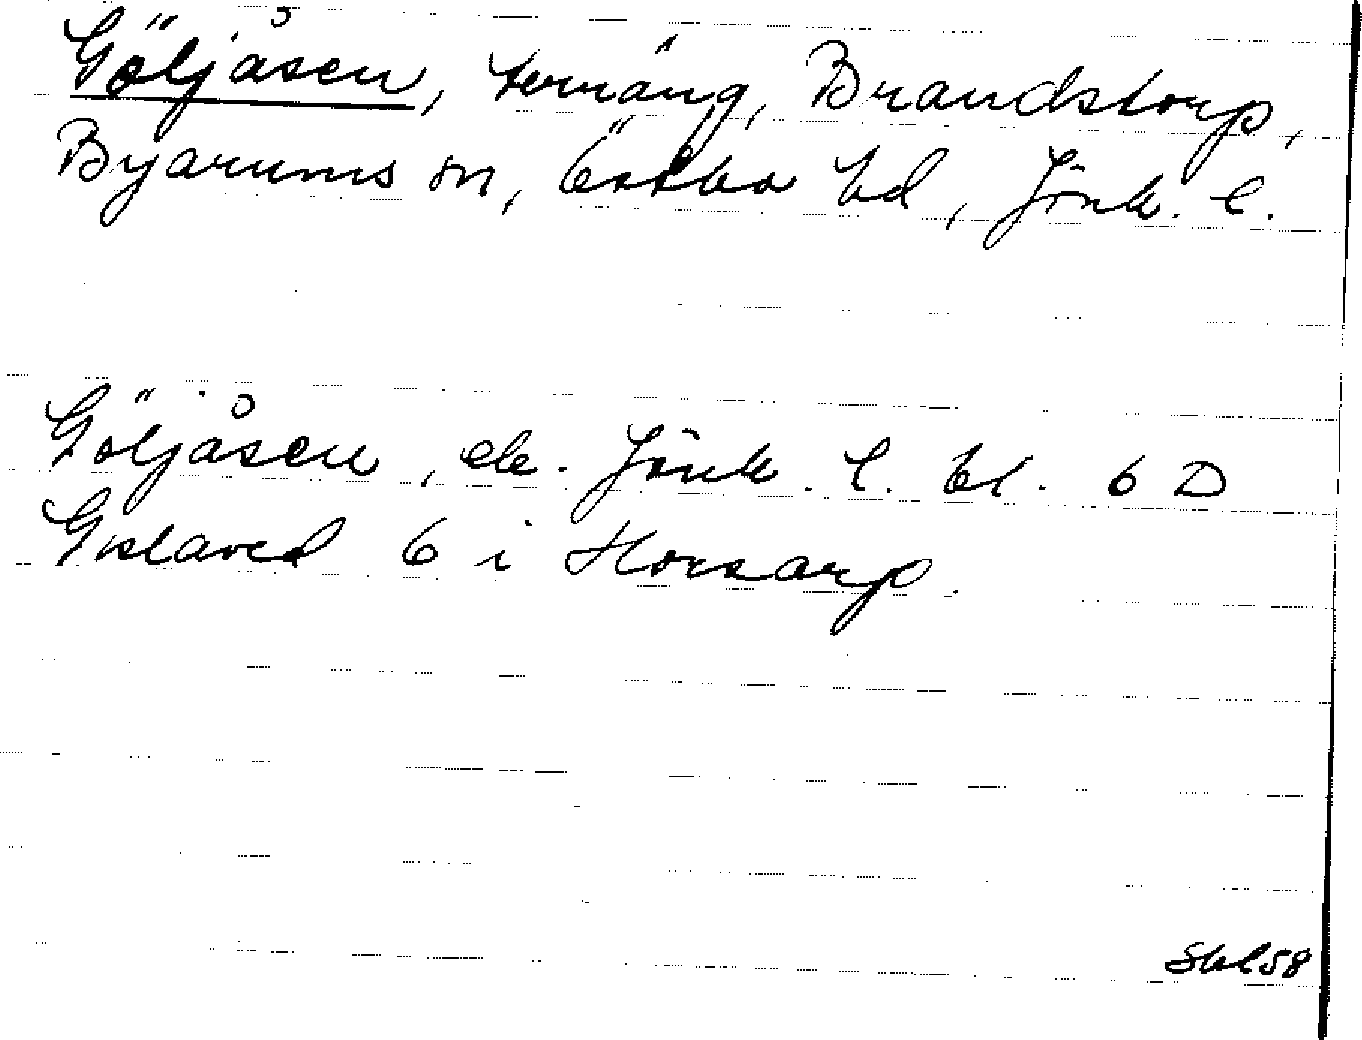 Göljåsen, terräng, Brandstorp,
Byarums sn, Östbo hd, Jönk. l.
Göljåsen, ek. Jönk. l. bl. 6 D
Gislaved 6 i Horsarp.
Skl58